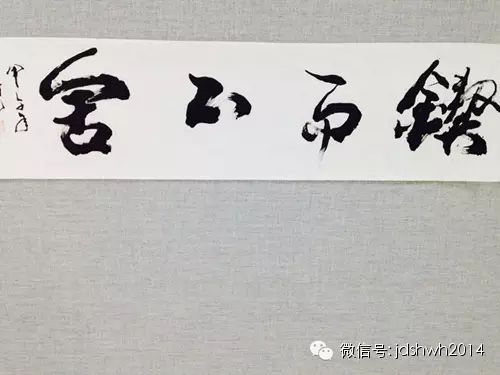 鍥而不舍
甲午年
微信号: jdshwh2014